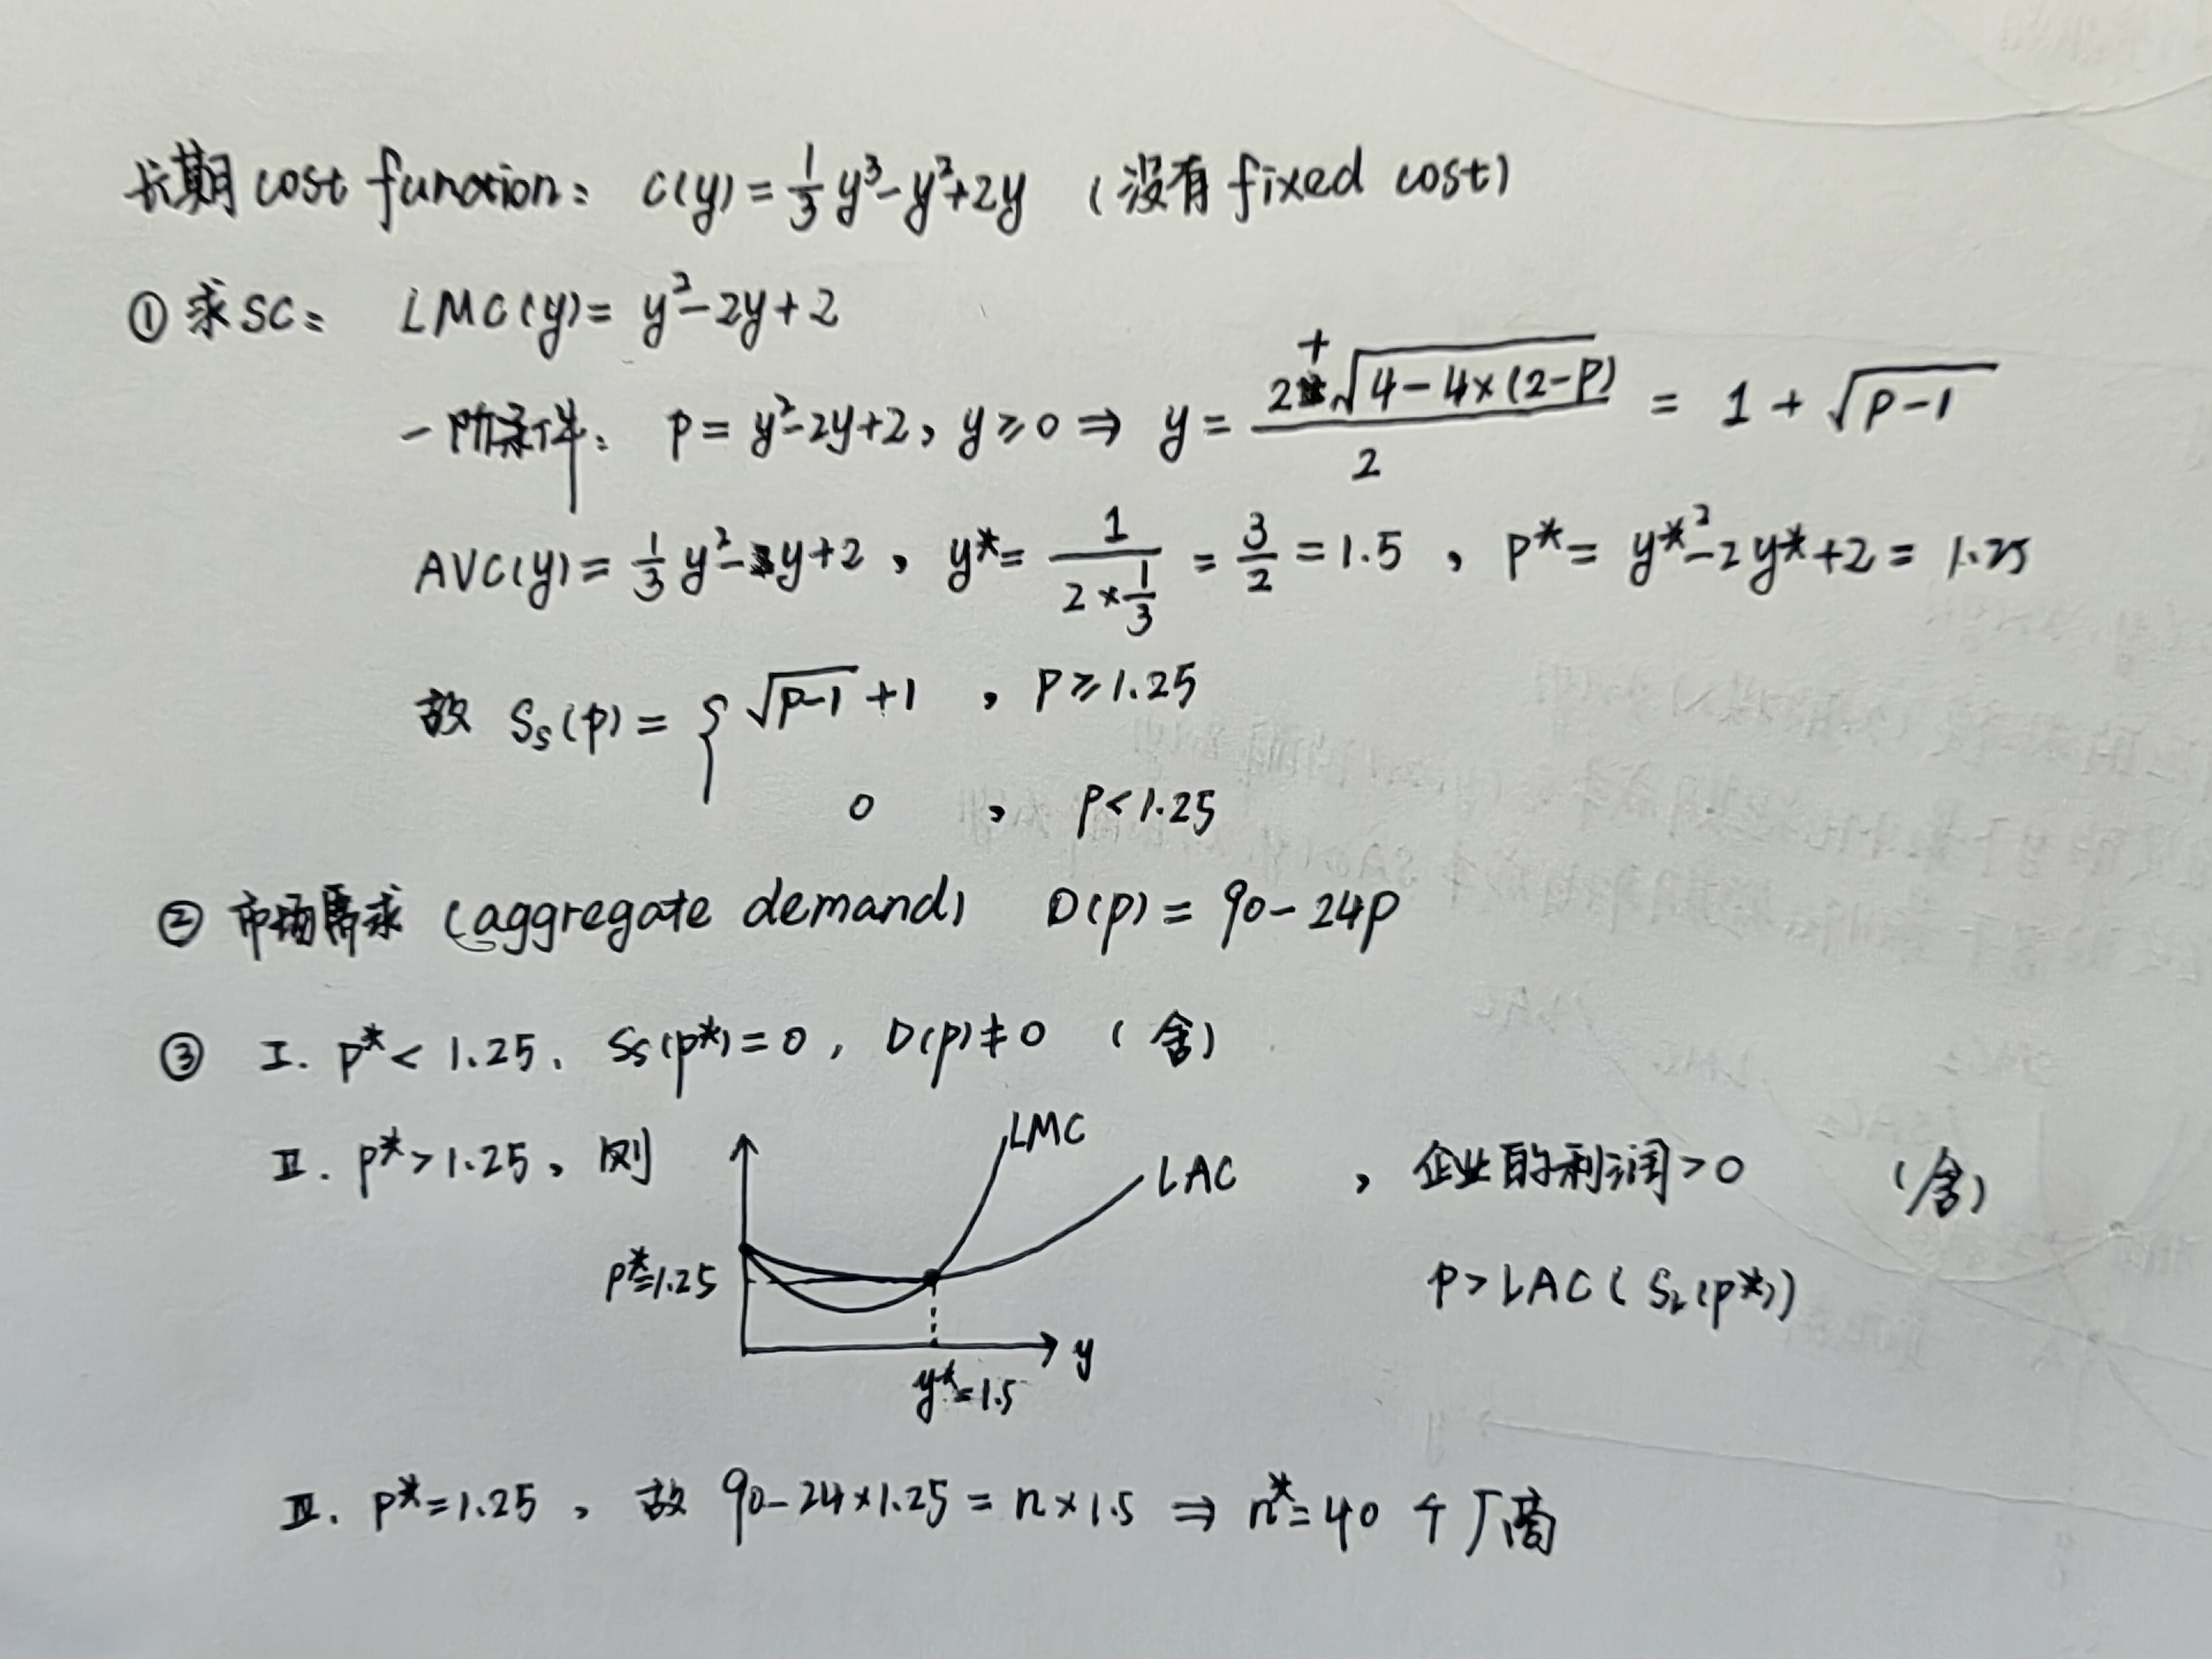 长期 cost function: c(y) = 1/3 y³ - y² + 2y (没有 fixed cost)
① 求SC: LMC(y) = y² - 2y + 2
一阶条件: p = y² - 2y + 2, y ≥ 0 ⇒ y = (2 + √(4 - 4×(2-p)))/2 = 1 + √(p-1)
AVC(y) = 1/3 y² - y + 2, y* = 1/(2×1/3) = 3/2 = 1.5, p* = y*² - 2y* + 2 = 1.25
故 Ss(p) = { √(p-1) + 1, p ≥ 1.25
0, p < 1.25
② 市场需求 (aggregate demand) D(p) = 90 - 24p
③ I. p* < 1.25, Ss(p*) = 0, D(p) ≠ 0 (舍)
II. p* > 1.25, 则
LMC
LAC
p* = 1.25
y
y* = 1.5
, 企业的利润 > 0 (舍)
p > LAC(S_L(p*))
III. p* = 1.25, 故 90 - 24×1.25 = n×1.5 ⇒ n* = 40 个厂商